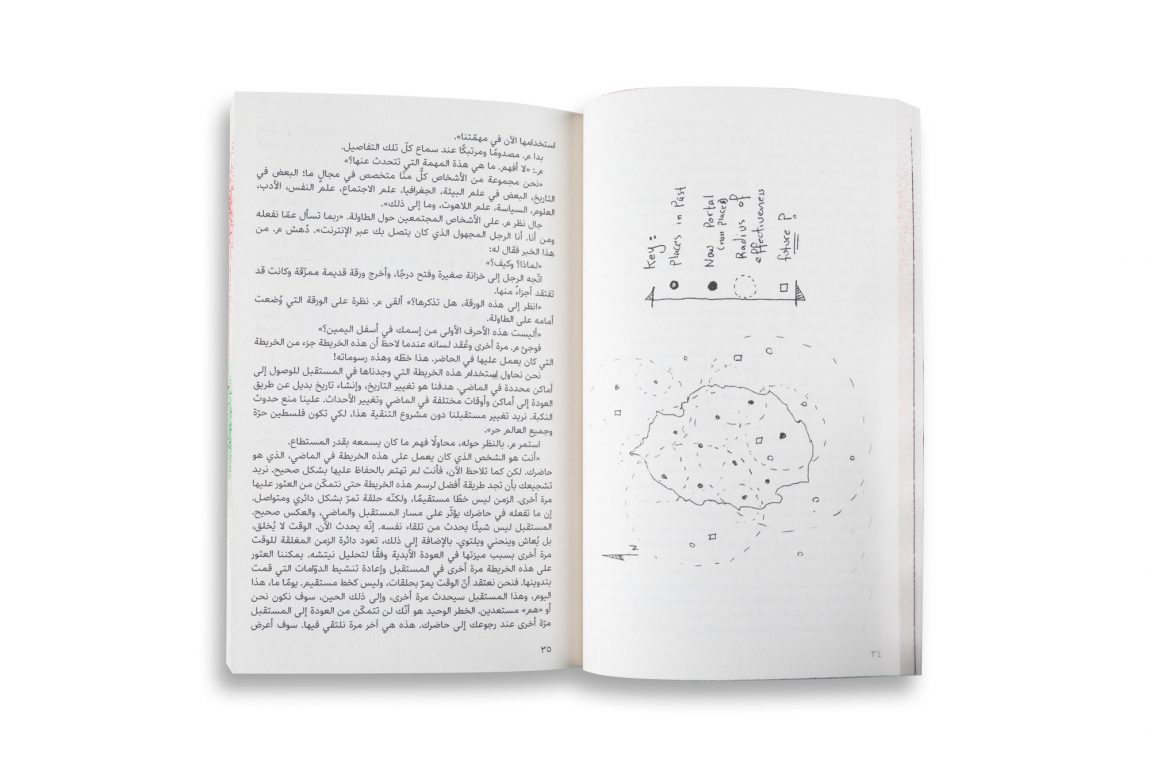 Key:
Places in Past
Now Portal
Radius of
effectiveness
future ?
N
٣٤
استخدامها الآن في مهمّتنا».
بدا م. مصدومًا ومرتبكًا عند سماع كلّ تلك التفاصيل.
م.: «لا أفهم. ما هي هذة المهمة التي تتحدث عنها؟»
«نحن مجموعة من الأشخاص كلٌّ منّا متخصص في مجالٍ ما؛ البعض في
التاريخ، البعض في علم البيئة، الجغرافيا، علم الاجتماع، علم النفس، الأدب،
العلوم، السياسة، علم اللاهوت، وما إلى ذلك».
جال نظر م. على الأشخاص المجتمعين حول الطاولة. «ربما تسأل عمّا نفعله
ومن أنا. أنا الرجل المجهول الذي كان يتصل بك عبر الإنترنت». دُهش م. من
هذا الخبر فقال له:
«لماذا؟ وكيف؟»
اتّجه الرجل إلى خزانة صغيرة وفتح درجًا، وأخرج ورقة قديمة ممزّقة وكانت قد
تفتقد أجزاءً منها.
«انظر إلى هذه الورقة، هل تذكرها؟» ألقى م. نظرة على الورقة التي وُضعت
أمامه على الطاولة.
«أليست هذه الأحرف الأولى من إسمك في أسفل اليمين؟»
فوجئ م. مرة أخرى وعُقد لسانه عندما لاحظ أن هذه الخريطة جزء من الخريطة
التي كان يعمل عليها في الحاضر. هذا خطّه وهذه رسوماته!
نحن نحاول إستخدام هذه الخريطة التي وجدناها في المستقبل للوصول إلى
أماكن محددة في الماضي. هدفنا هو تغيير التاريخ، وإنشاء تاريخ بديل عن طريق
العودة إلى أماكن وأوقات مختلفة في الماضي وتغيير الأحداث. علينا منع حدوث
النكبة. نريد تغيير مستقبلنا دون مشروع التنقية هذا، لكي تكون فلسطين حرّة
وجميع العالم حر».
استمر م. بالنظر حوله، محاولًا فهم ما كان يسمعه بقدر المستطاع.
«أنت هو الشخص الذي كان يعمل على هذه الخريطة في الماضي، الذي هو
حاضرك. لكن كما تلاحظ الآن، فأنت لم تهتم بالحفاظ عليها بشكل صحيح. نريد
تشجيعك بأن تجد طريقة أفضل لرسم هذه الخريطة حتى نتمكّن من العثور عليها
مرة أخرى. الزمن ليس خطًا مستقيمًا، ولكنّه حلقة تمرّ بشكل دائري ومتواصل.
إن ما تفعله في حاضرك يؤثّر على مسار المستقبل والماضي، والعكس صحيح.
المستقبل ليس شيئًا يحدث من تلقاء نفسه. إنّه يحدث الآن. الوقت لا يُخلق،
بل يُعاش وينحني ويلتوي. بالإضافة إلى ذلك، تعود دائرة الزمن المغلقة للوقت
مرة أخرى بسبب ميزتها في العودة الأبدية وفقًا لتحليل نيتشه. يمكننا العثور
على هذه الخريطة مرة أخرى في المستقبل وإعادة تنشيط الدوّامات التي قمت
بتدوينها. فنحن نعتقد أنّ الوقت يمرّ بحلقات، وليس كخط مستقيم. يومًا ما، هذا
اليوم، وهذا المستقبل سيحدث مرة أخرى، وإلى ذلك الحين، سوف نكون نحن
أو «هم» مستعدين. الخطر الوحيد هو أنّك لن تتمكّن من العودة إلى المستقبل
مرّة أخرى عند رجوعك إلى حاضرك. هذه هي آخر مرة نلتقي فيها. سوف أعرض
٣٥